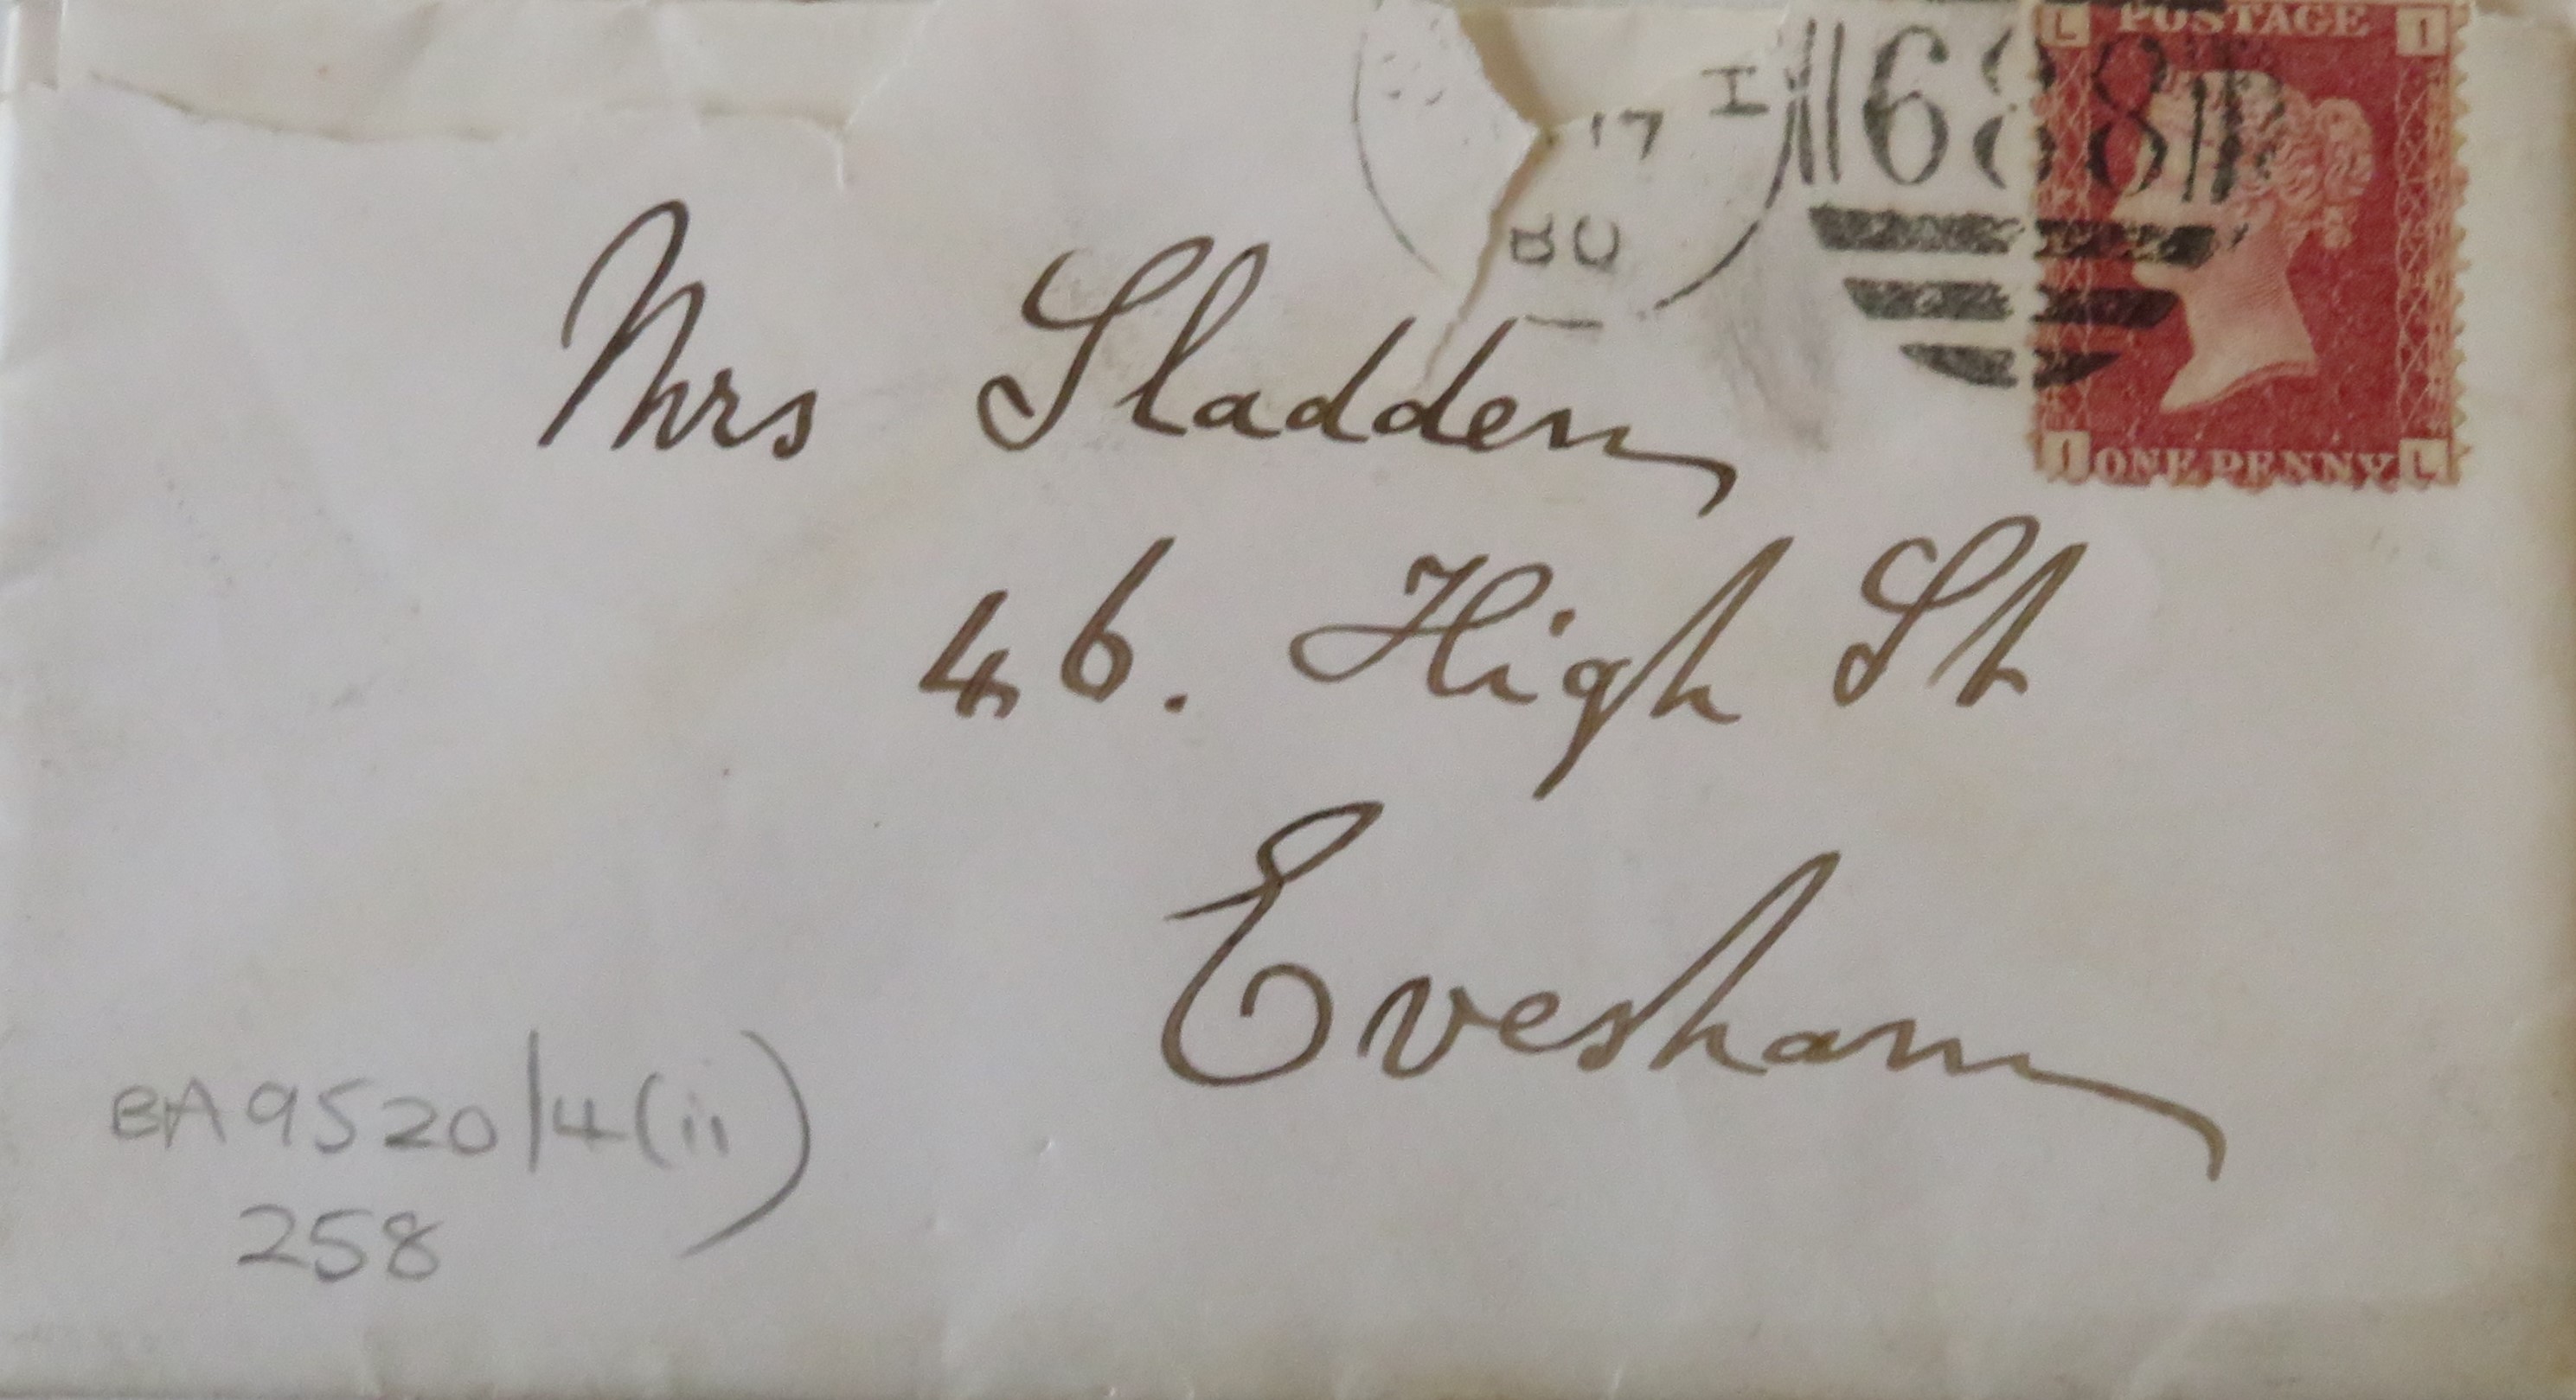 L POSTAGE I
688
H
17
Mrs Sladden
I ONE PENNY L
46. High St
Evesham
BA9520/4(ii)
258